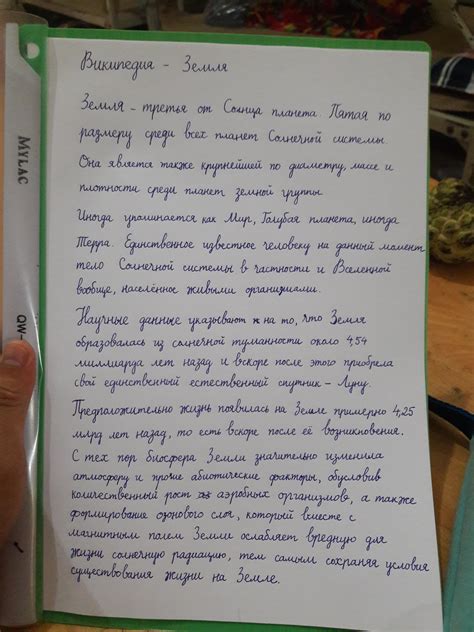 Википедия - Земля
Земля - третья от Солнца планета. Пятая по
размеру среди всех планет Солнечной системы.
Она является также крупнейшей по диаметру, массе и
плотности среди планет земной группы
Иногда упоминается как Мир, Голубая планета, иногда
Терра. Единственное известное человеку на данный момент
тело Солнечной системы в частности и Вселенной
вообще, населённое живыми организмами.
Научные данные указывают на то, что Земля
образовалась из солнечной туманности около 4,54
миллиарда лет назад и вскоре после этого приобрела
свой единственный естественный спутник - Луну.
Предположительно жизнь появилась на Земле примерно 4,25
млрд лет назад, то есть вскоре после её возникновения.
С тех пор биосфера Земли значительно изменила
атмосферу и прочие абиотические факторы, обусловив
количественный рост аэробных организмов, а также
формирование озонового слоя, который вместе с
магнитным полем Земли ослабляет вредную для
жизни солнечную радиацию, тем самым сохраняя условия
существования жизни на Земле.
MYLAC
QW-